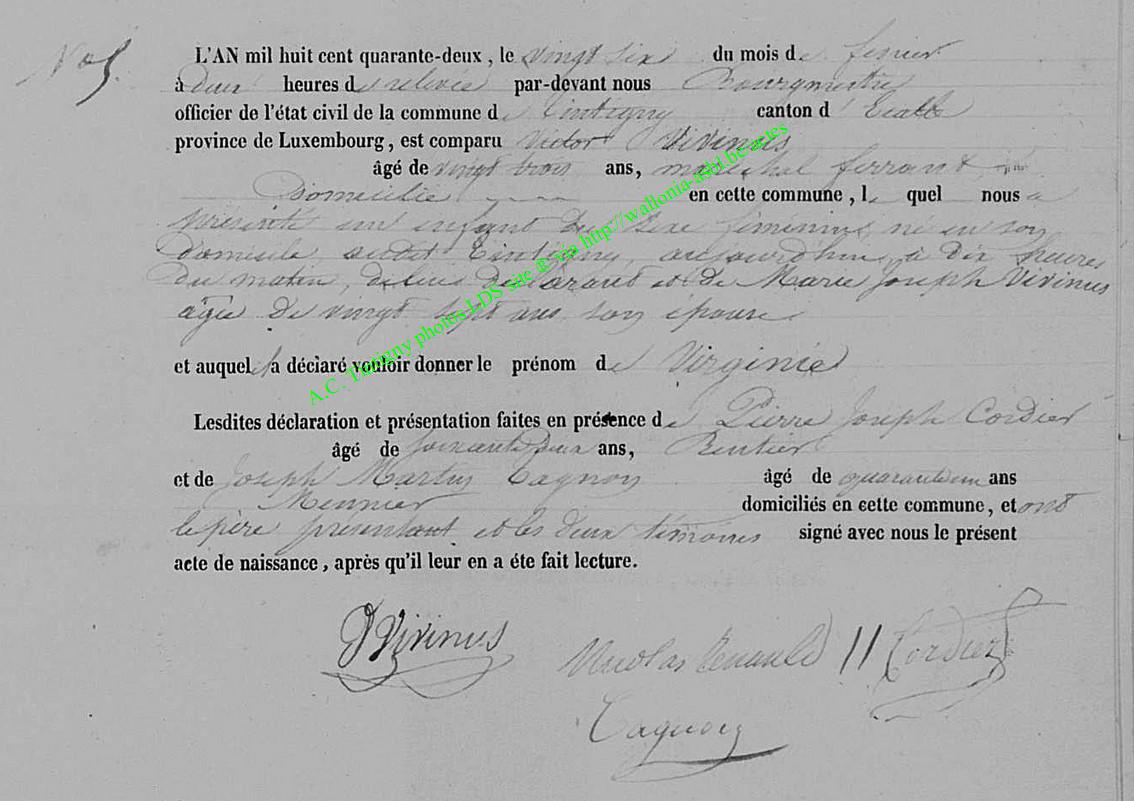 No 5.
L'AN mil huit cent quarante-deux, le vingt six du mois de fevrier
à deux heures de relevée par-devant nous Bourgmestre
officier de l'état civil de la commune de Tintigny canton d' Etalle
province de Luxembourg, est comparu Victor Vivinus
âgé de vingt trois ans, maréchal ferrant
Domicilié en cette commune, le quel nous a
présenté un enfant du sexe féminin, né en son
domicile audit Tintigny, aujourd'hui, à dix heures
du matin, de lui déclarant et de Marie Joseph Vivinus
agée de vingt sept ans son épouse
et auquel il a déclaré vouloir donner le prénom de Virginie
Lesdites déclaration et présentation faites en présence de Pierre Joseph Cordier
âgé de soixante deux ans, Rentier
et de Joseph Martin Tagnon âgé de quarante un ans
Meunier domiciliés en cette commune, et ont
le père présentant et les deux témoins signé avec nous le présent
acte de naissance, après qu'il leur en a éte fait lecture.
Vivinus Nicolas Cordier
A.C. Tintigny photos LDS site @ via http://wallonia-asbl.be/actes